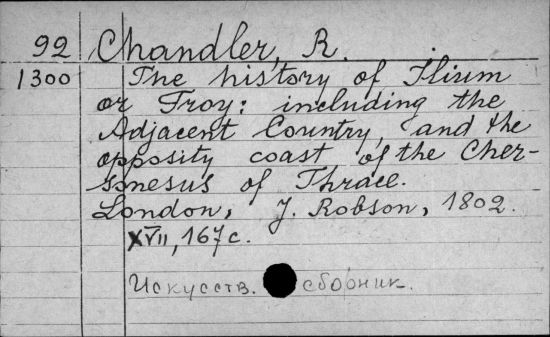 92 Chandler, R.
1300 The history of Ilium
or Troy: including the
Adjacent Country, and the
opposity coast of the Cher-
sonesus of Thrace.
London, J. Robson, 1802.
XVII, 167 с.
Искусств. сборник.